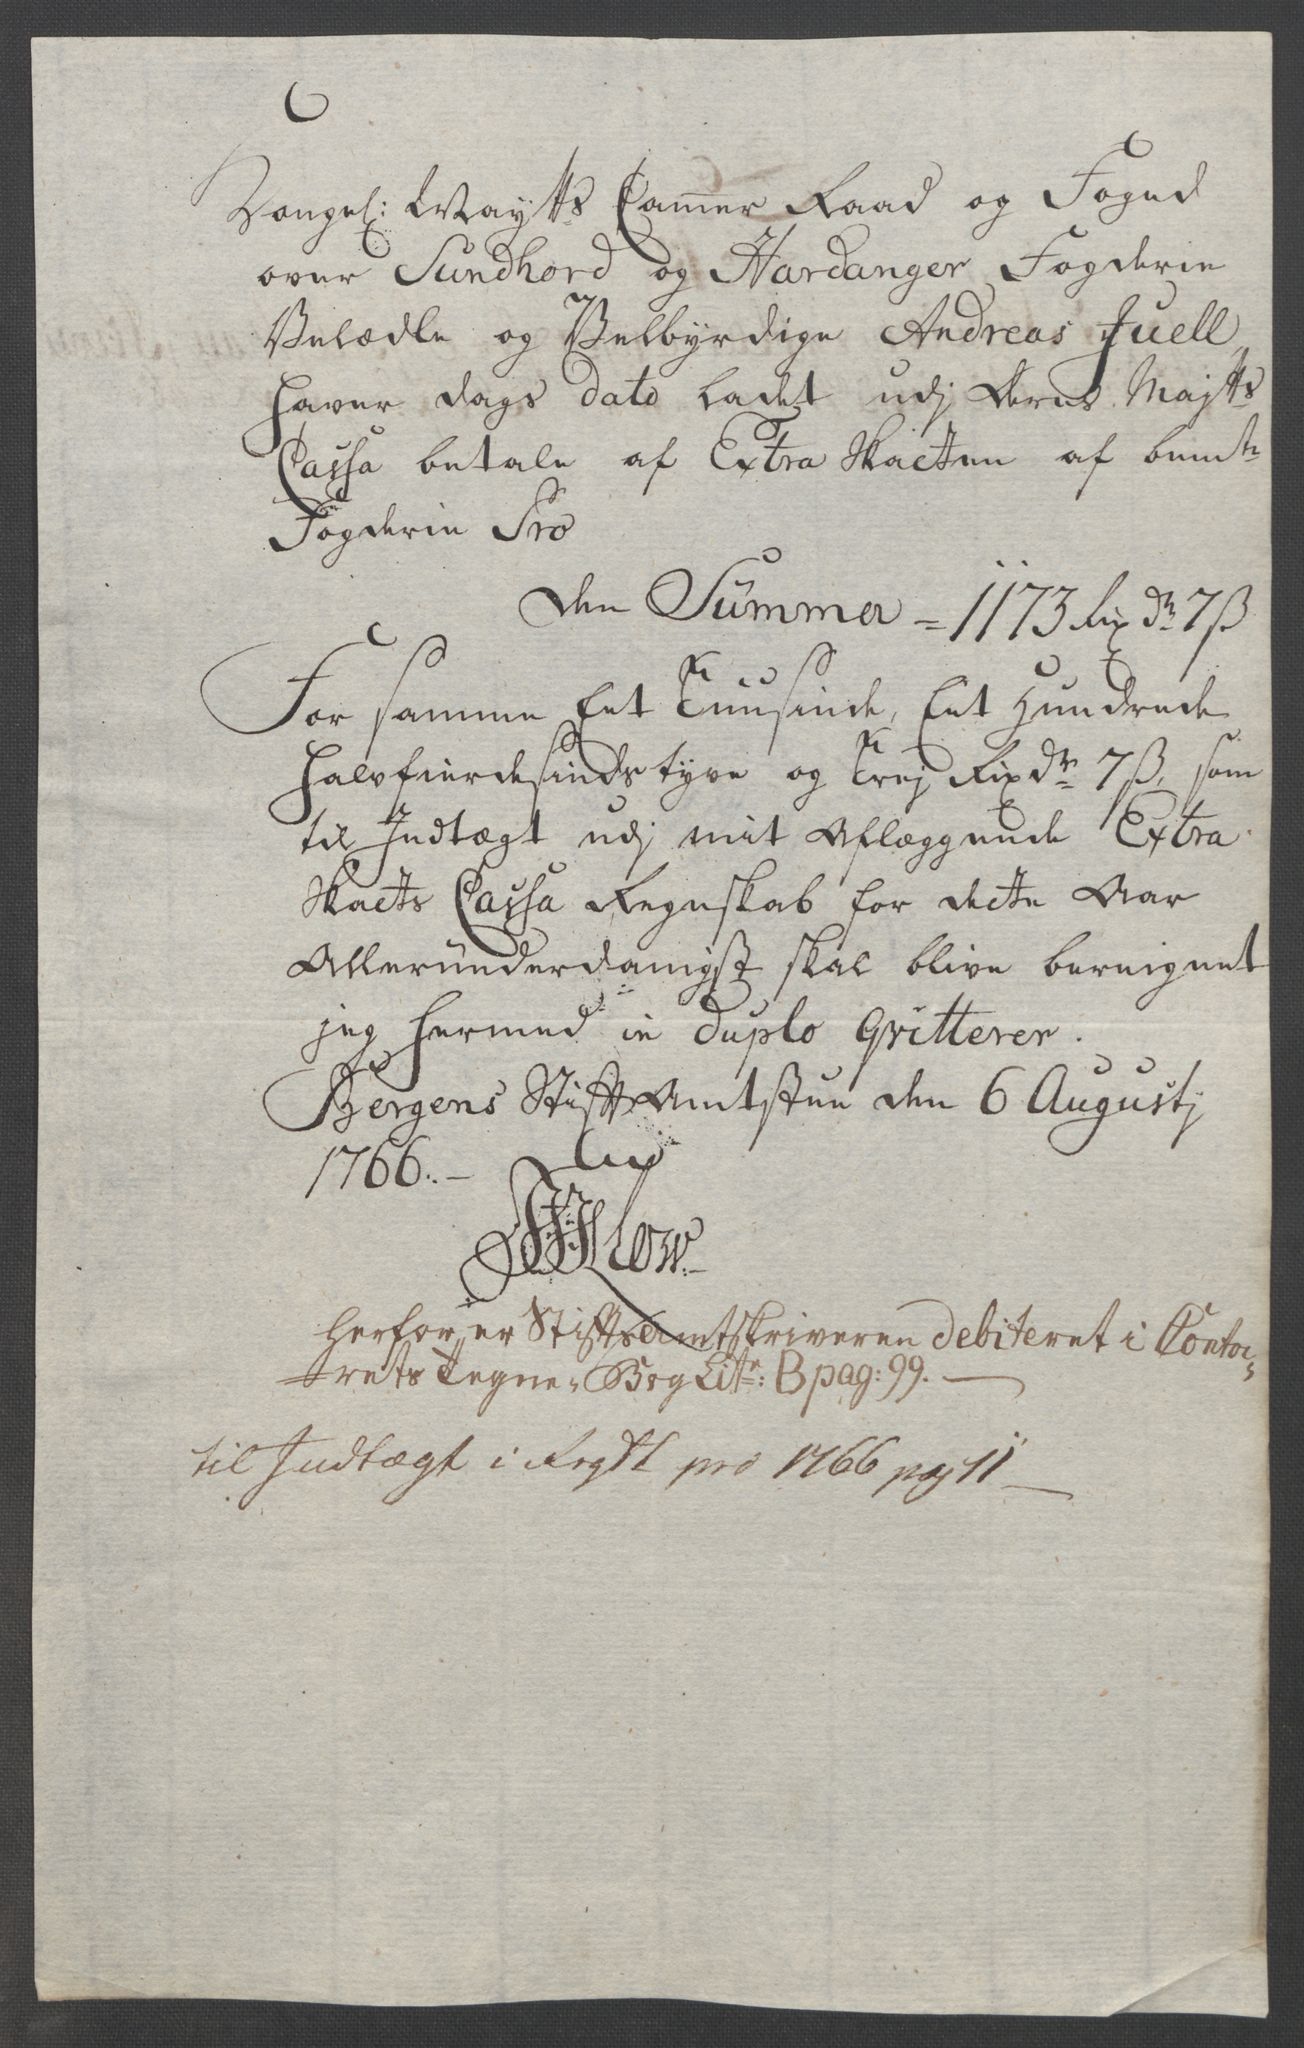 Kongel: Mayts Cammer Raad og Foged
over Sundhord og Hardanger Fogderie
Velædle og Velbyrdige Andreas Juell,
haver dags dato ladet udj Deres Majts
Cassa betale af Extra Skatten af bemte
Fogderie Pro
den Summa = 1173 Rixdr 7ß
For samme Eet Tuusinde, Eet Hundrede
halvfierdesindstyve og Trej Rixdr 7ß, som
til Indtægt udj mit Aflæggende Extra
Skatts Cassa Regnskab for dette Aar
Allerunderdanigst skal blive beregnet
jeg hermed in duplo Qvitterer.
Bergens StiftAmtstue den 6 Augustj
1766.-
Low.
Herfor er StiftsAmtskriveren debiteret i Conto-
rets Tegne-Bog Litr: B pag: 99.
til Indtægt i Regsk pro 1766 pag 11